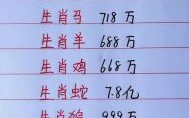 生肖马 718万
生肖羊 688万
生肖鸡 668万
生肖蛇 7.8亿
生肖猴 999万